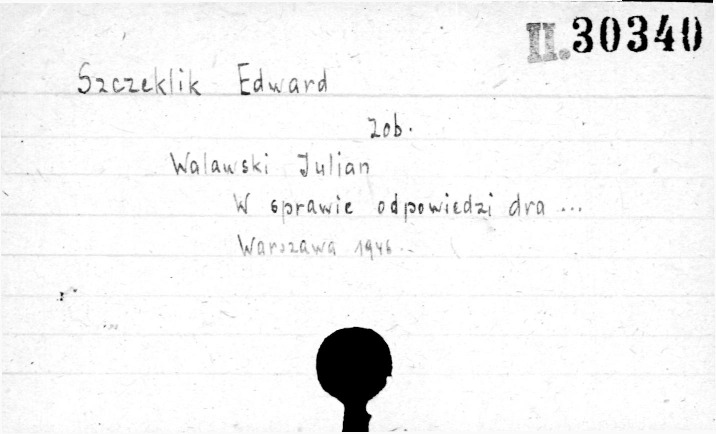 II.30340
Szczeklik Edward
zob.
Walawski Julian
W sprawie odpowiedzi dra ...
Warszawa 1946